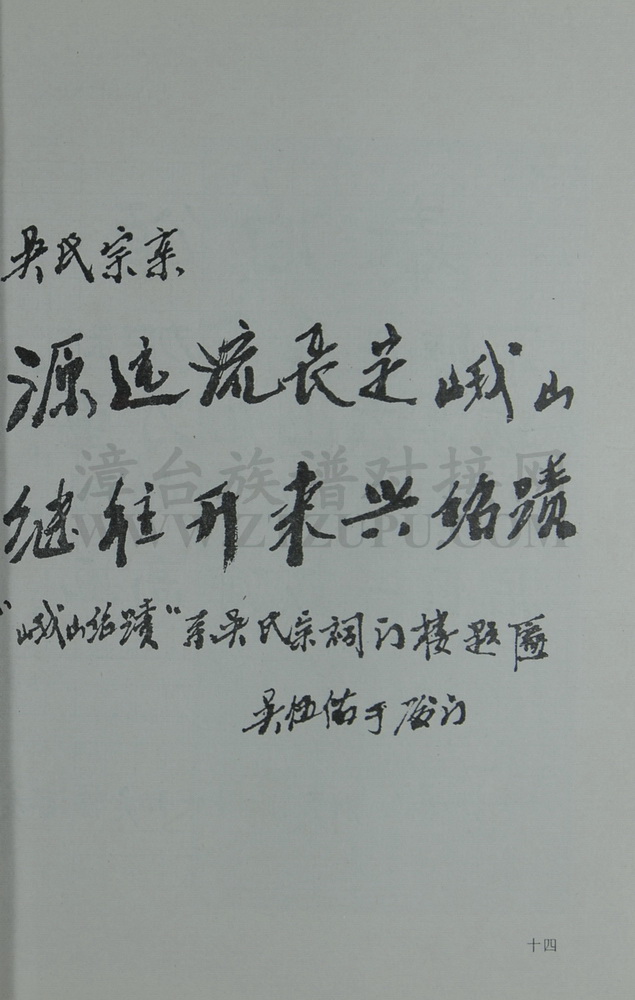 吴氏宗亲
源远流长定峨山
继往开来兴绍蹟
"峨山绍蹟"系吴氏宗祠门楼题匾
吴伍佑于厦门
漳台族谱对接网
WWW.ZTZUPU.COM
十四